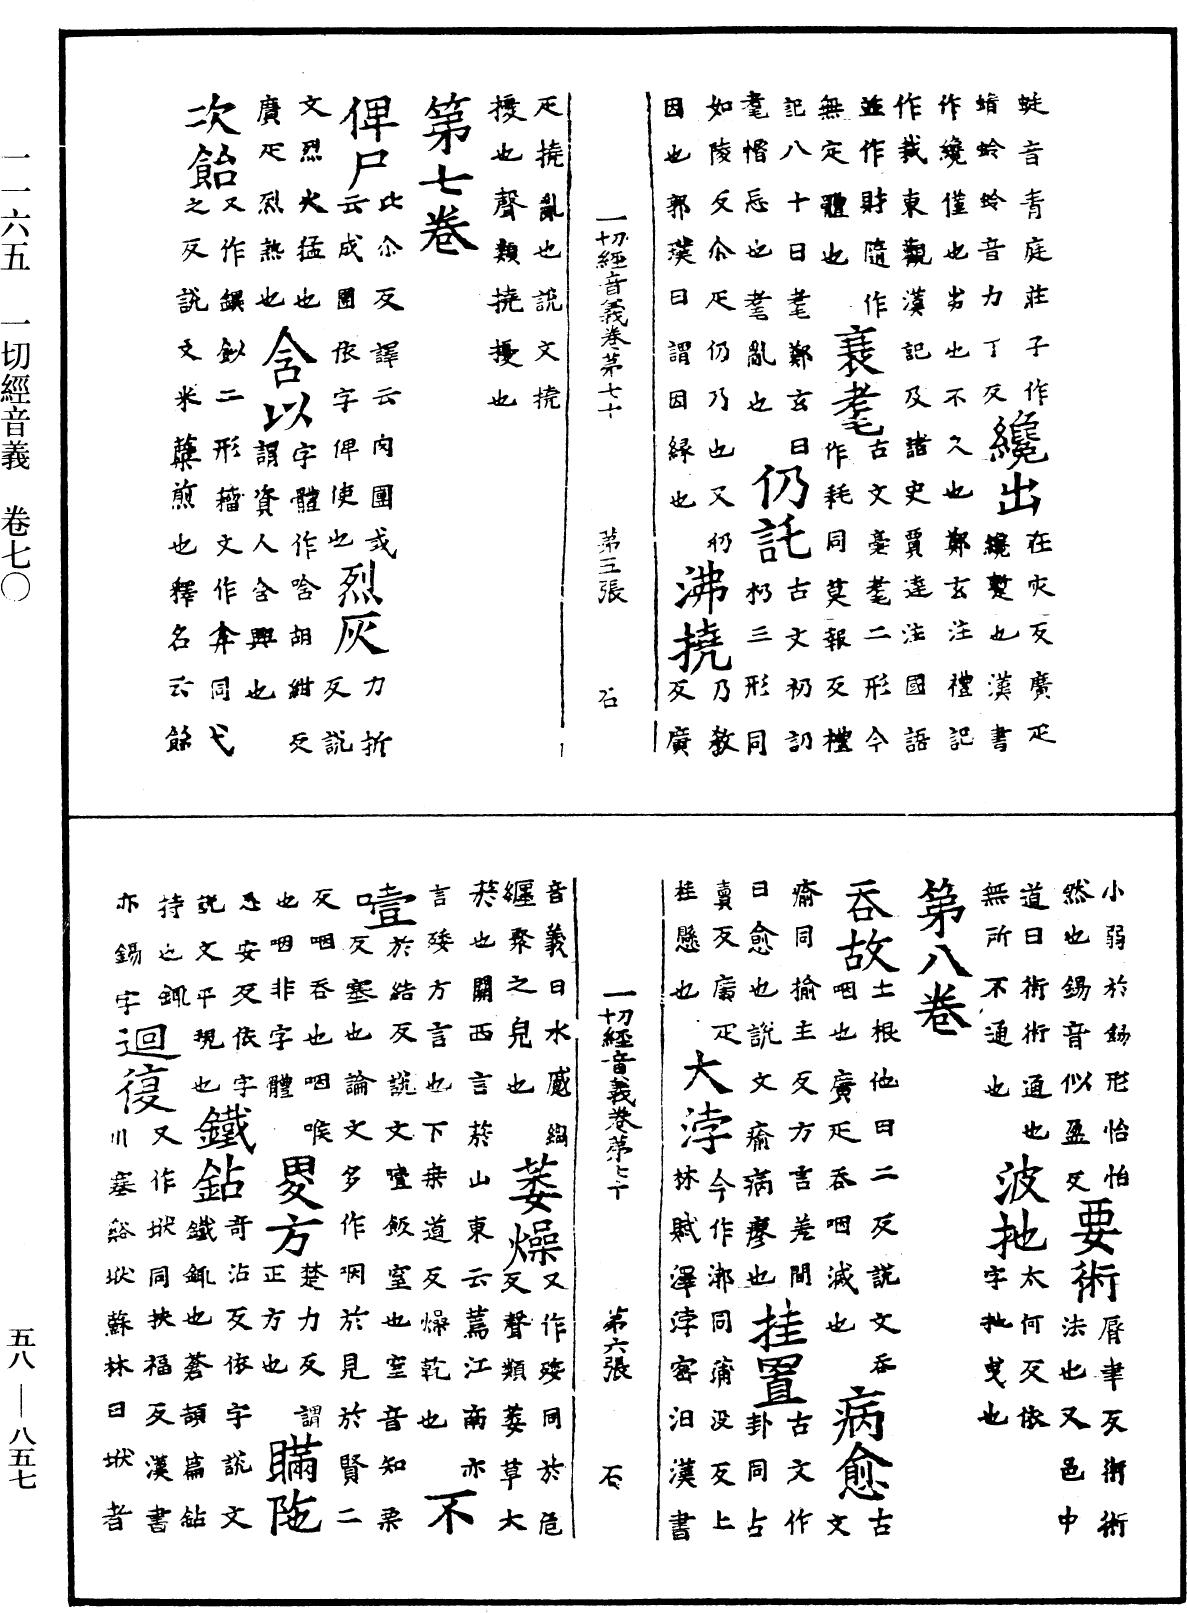 一一六五　一切經音義　卷七〇
五八—八五七
蜓音青庭莊子作
蜻蛉蛉音力丁反纔出在灾反廣疋纔蹔也漢書
作纔僅也劣也不久也鄭玄注禮記
作裁東觀漢記及諸史賈逵注國語
並作財隨作衰耄古文𦒷耄二形今
無定體也作耗同莫報反禮
記八十曰耄鄭玄曰仍託古文礽訒
耄惛忘也耄亂也扔三形同
如陵反尒疋仍乃也又仍沸撓乃教
因也郭璞曰謂因緣也反廣
一切經音義卷第七十　第五張　石
疋撓亂也說文撓
擾也聲類撓擾也
第七卷
俾尸比尒反譯云肉團或云成團依字俾使也烈灰力折反說
文烈火猛也含以字體作唅胡紺反
廣疋烈熱也謂資人含興也
次飴又作𩛿𩚮二形籀文作𩛛同弋
之反說文米糵煎也釋名云飴
小弱於餳形怡怡要術脣聿反術術
然也餳音似盈反法也又邑中
道曰術術通也波扡太何反依
無所不通也字扡曳也
第八卷
吞故土根他曰二反說文吞咽也廣疋吞咽滅也病愈古文
瘉同揄主反方言差間挂置古文作
曰愈也說文瘉病瘳也卦同古
賣反廣疋大浡今作渤同蒲没反上
挂懸也林賦澤浡宻汨漢書
一切經音義卷第七十　第六張　石
音義曰水盛萎燥又作矮同於危
纒聚之皃也反聲類萎草大
菸也關西言菸山東云蔫江南亦
言矮方言也下桒道反燥乾也不
噎於結反說文噎飯窒也窒音知栗
反塞也論文多作咽於見於賢二
反咽吞也咽喉畟方楚力反謂
也咽非字體正方也瞞陁
𠰥安反依字鐵鉆奇沾反依字說文
說文平現也鐵銸也蒼頡篇鉆
持也銸迴澓又作垘同扶福反漢書
亦錫字川塞谿垘蘇林曰垘者